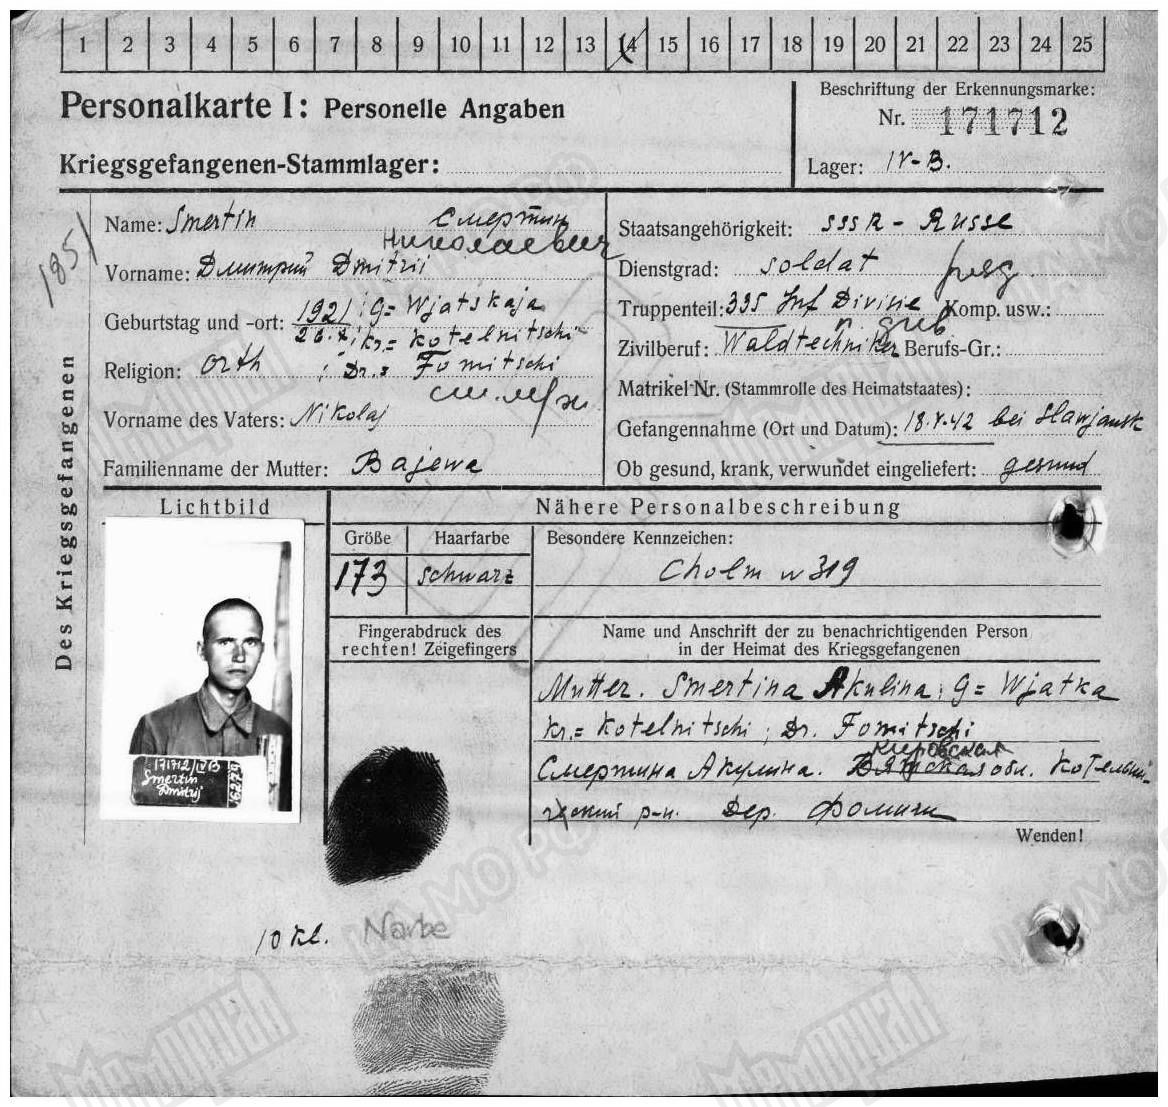 1 2 3 4 5 6 7 8 9 10 11 12 13 14 15 16 17 18 19 20 21 22 23 24 25
Personalkarte I: Personelle Angaben
Kriegsgefangenen-Stammlager:
Beschriftung der Erkennungsmarke:
Nr. 171712
Lager: IV-B.
1851
Des Kriegsgefangenen
Name: Smertin Смертин
Николаевич
Vorname: Дмитрий Dmitrii
Geburtstag und -ort: 1921 ; G= Wjatskaja
26.X. ; Kr.= Kotelnitschi
Religion: Orth ; Dr.= Fomitschi
Vorname des Vaters: Nikolaj
Familienname der Mutter: Bajewa
Staatsangehörigkeit: SSSR - Russe
Dienstgrad: Soldat
Truppenteil: 335 Inf Divisie Komp. usw.:
Zivilberuf: Waldtechniker Berufs-Gr.:
Matrikel Nr. (Stammrolle des Heimatstaates):
Gefangennahme (Ort und Datum): 18.V.42 bei Slawjansk
Ob gesund, krank, verwundet eingeliefert: gesund
Lichtbild
171712/IVB
Smertin
Dmitrij
Nähere Personalbeschreibung
Größe Haarfarbe Besondere Kennzeichen:
173 schwarz Cholm w 319
Fingerabdruck des
rechten! Zeigefingers
Name und Anschrift der zu benachrichtigenden Person
in der Heimat des Kriegsgefangenen
Mutter. Smertina Akulina; G= Wjatka
Kr.= Kotelnitschi ; Dr. Fomitschi
Кировская
Смертина Акулина. Вятская обл. Котельни-
ческий р-н. Дер. Фомичи
Wenden!
10 Kl. Narbe
ЦАМО РФ
Мемориал